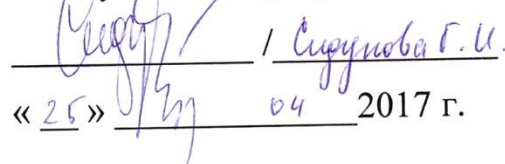 / Сидунова Г.И.
« 25 » 04 2017 г.